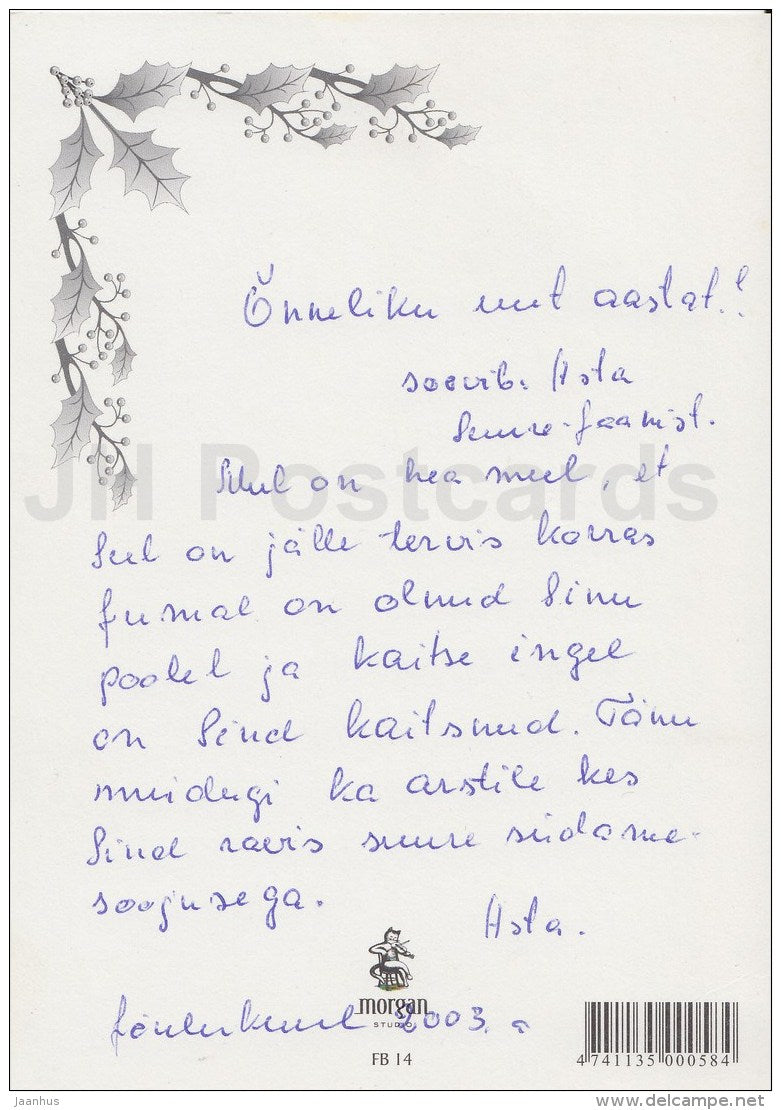 Õnneliku uut aastat.!
soovib. Asta
Suure-Jaanist.
Mul on hea meel, et
Sul on jälle tervis korras
Jumal on olnud Sinu
poolel ja kaitse ingel
on Sind kaitsnud. Tänu
muidugi ka arstile kes
Sind ravis suure südame-
soojusega.
Asta.
Jõulukuul 2003. a
morgan
STUDIO
FB 14
4 741135 000584
JH Postcards
Jaanhus
www.delcampe.net